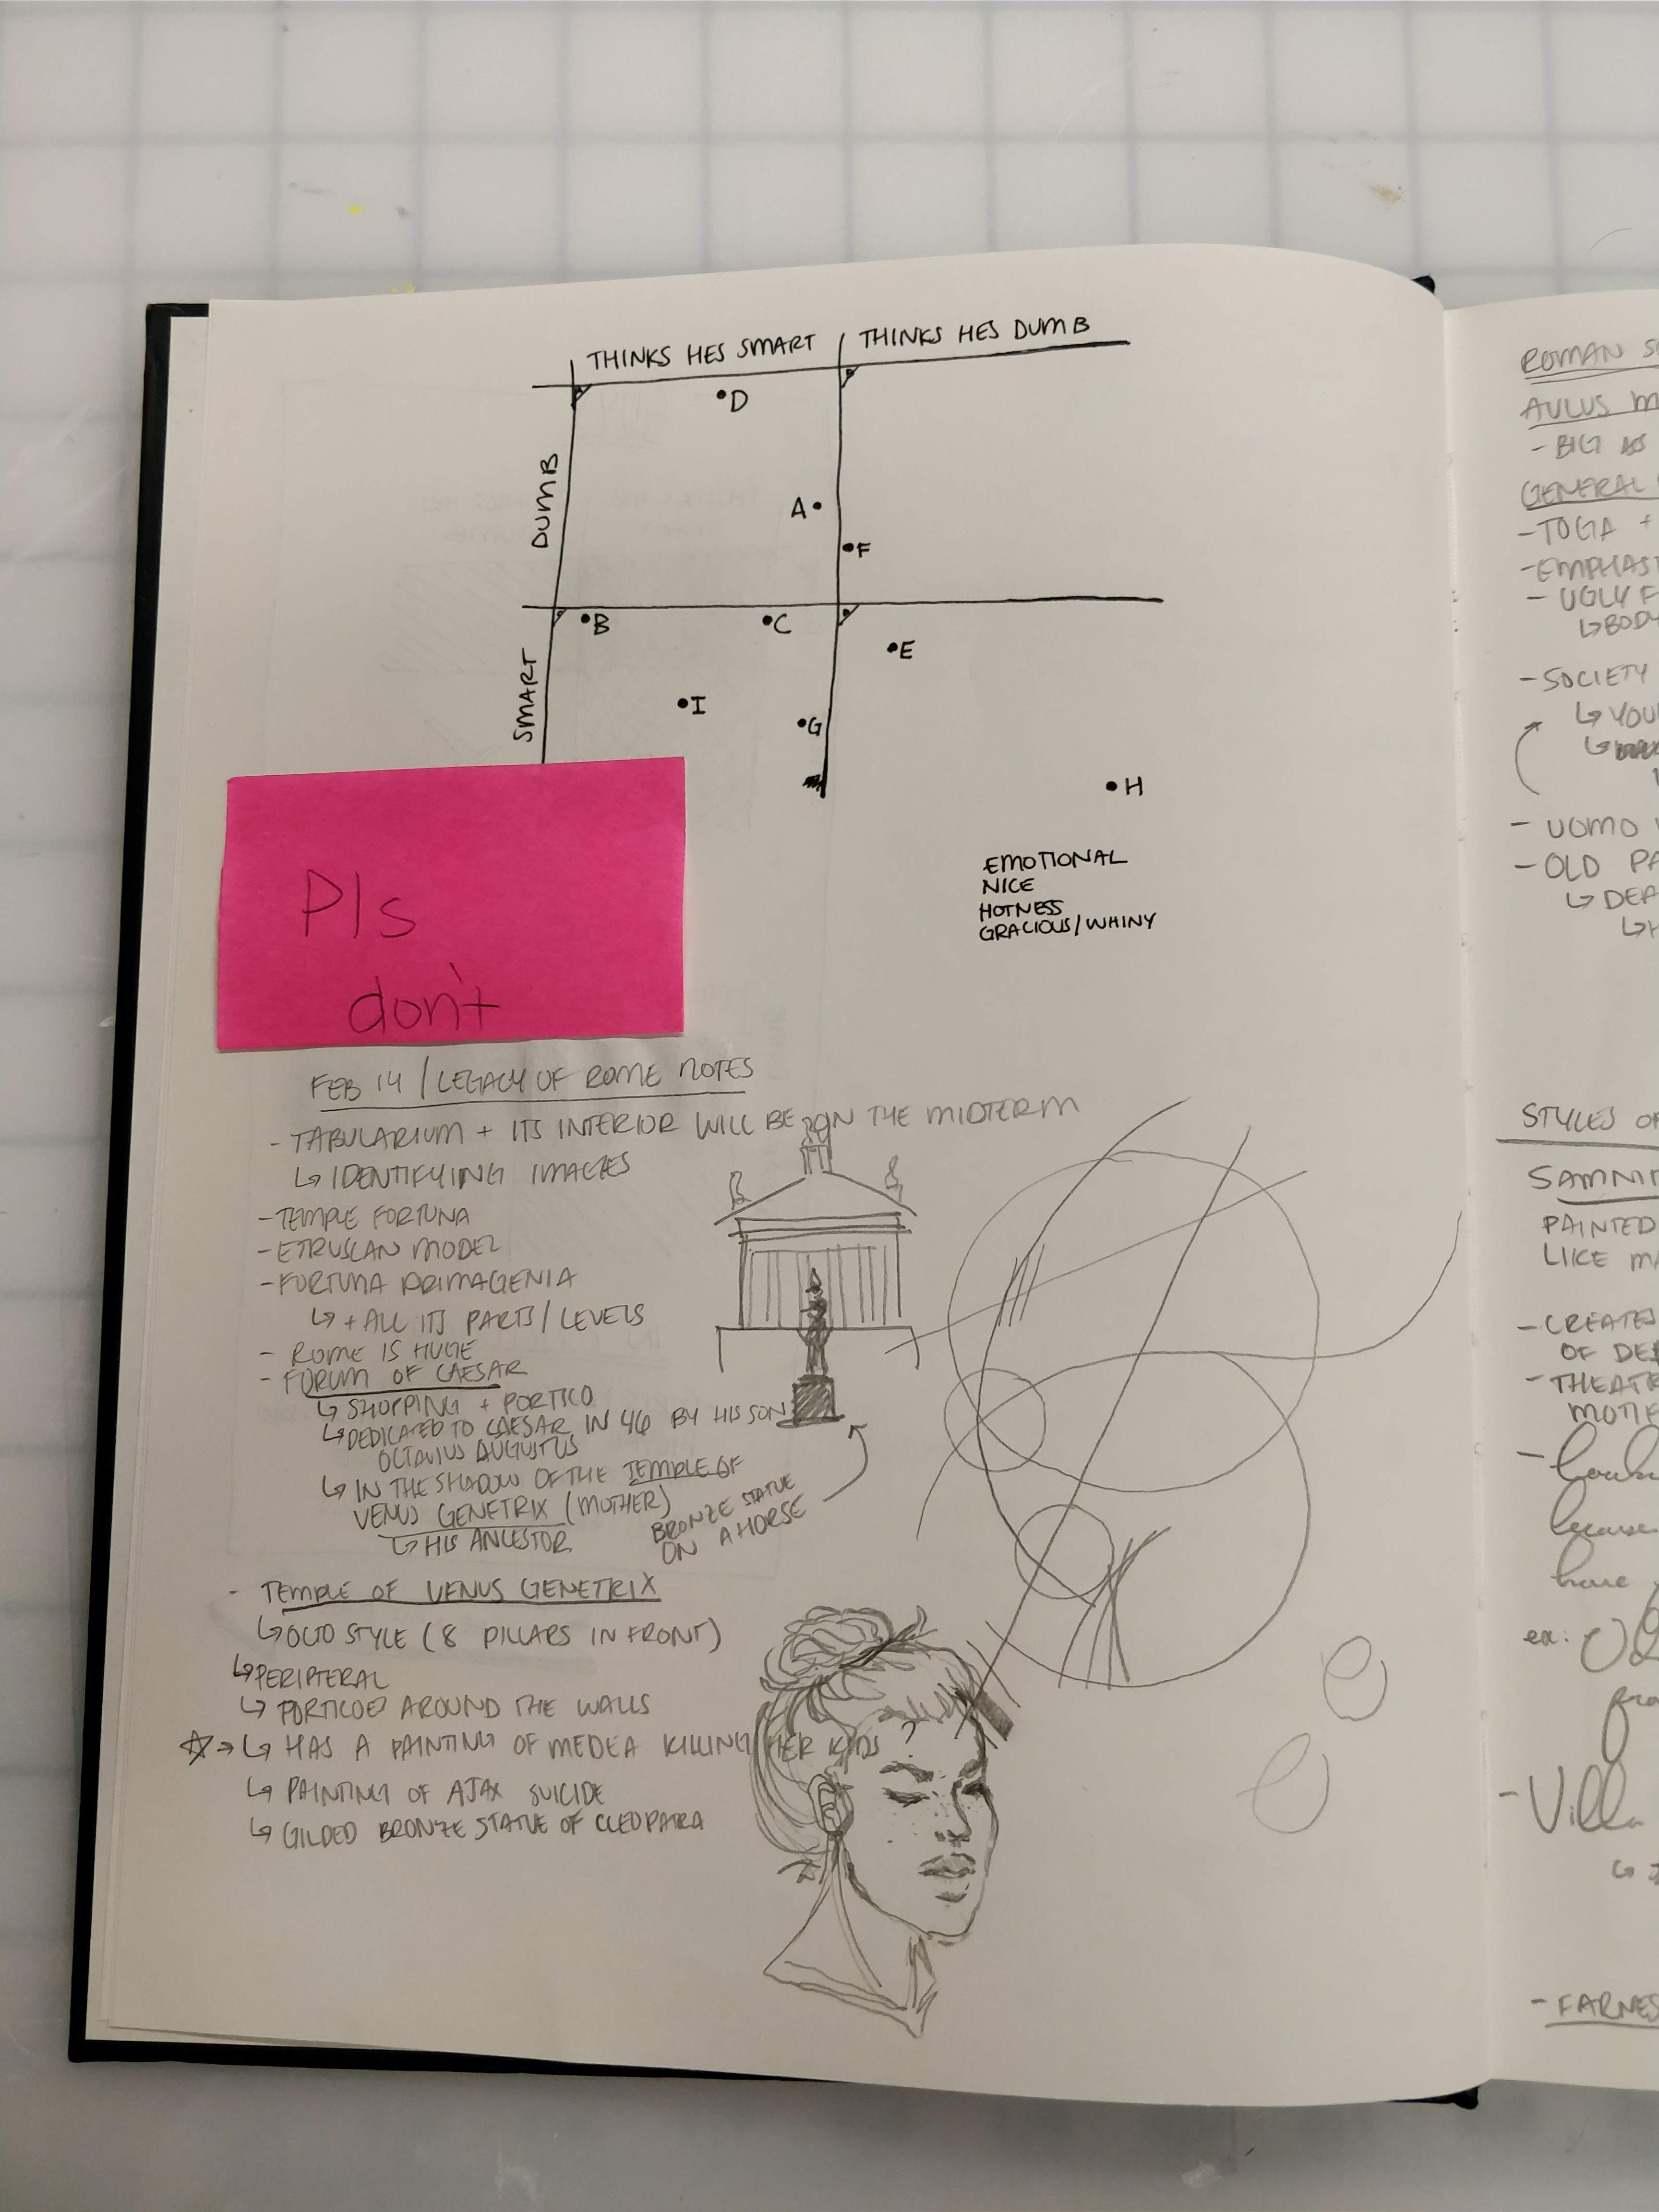 THINKS HES SMART THINKS HES DUMB
DUMB
SMART
D
A
F
B
C
E
I
G
H
EMOTIONAL
NICE
HOTNESS
GRACIOUS/WHINY
Pls
don't
FEB 14 / LEGACY OF ROME NOTES
- TABULARIUM + ITS INTERIOR WILL BE ON THE MIDTERM
↳ IDENTIFYING IMAGES
- TEMPLE FORTUNA
- ETRUSCAN MODEL
- FORTUNA PRIMAGENIA
↳ + ALL ITS PARTS / LEVELS
- ROME IS HUGE
- FORUM OF CAESAR
↳ SHOPPING + PORTICO
↳ DEDICATED TO CAESAR IN 46 BY HIS SON
OCTAVIUS AUGUSTUS
↳ IN THE SHADOW OF THE TEMPLE OF
VENUS GENETRIX (MOTHER)
↳ HIS ANCESTOR
BRONZE STATUE
ON A HORSE
- TEMPLE OF VENUS GENETRIX
↳ OCTO STYLE (8 PILLARS IN FRONT)
↳ PERIPTERAL
↳ PORTICOES AROUND THE WALLS
☆→ ↳ HAS A PAINTING OF MEDEA KILLING HER KIDS ?
↳ PAINTING OF AJAX SUICIDE
↳ GILDED BRONZE STATUE OF CLEOPATRA
ROMAN
AULUS
- BIG
GENERAL
- TOGA +
- UGLY
↳ BODY
- SOCIETY
↳
- UOMO
- OLD
↳
STYLES
PAINTED
LIKE
- CREATES
OF
-
because
have
ex:
- Villa